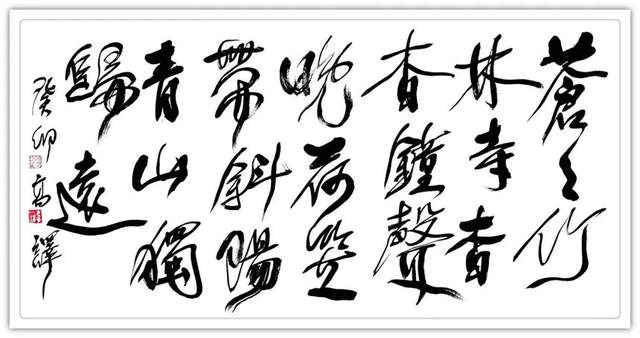 蒼々竹
林寺杳
杳鐘聲
晚荷笠
帶斜陽
青山獨
歸遠
癸卯 高